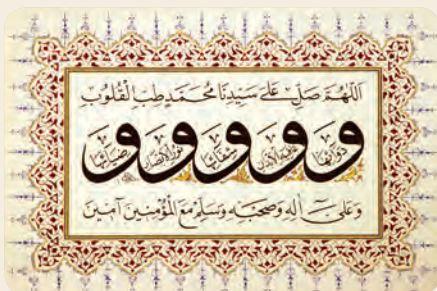 اللهم صل على سيدنا محمد طب القلوب
و دوائها و عافية الأبدان و شفائها و نور الأبصار و ضيائها
وعلى آله وصحبه وسلم مع المؤمنين آمين